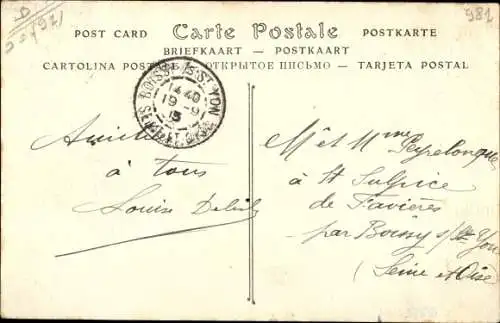 981
POST CARD — Carte Postale — POSTKARTE
BRIEFKAART — POSTKAART
CARTOLINA POSTALE ОТКРЫТОЕ ПИСЬМО — TARJETA POSTAL
BOISSY-Ss-St YON
14 40
19 - 9
13
SEINE-ET-OISE
Amitiés
à tous
Louise
Mr et Mme Peyrelongue
à St Sulpice
de Favières
par Boissy s/s St Yon
(Seine et Oise)